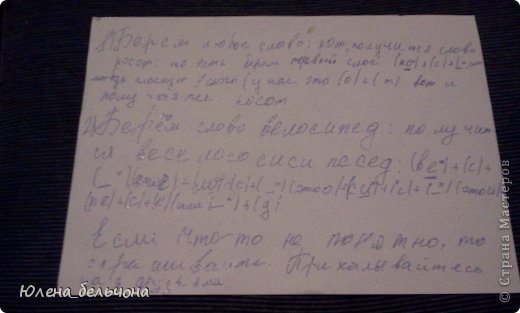 1) Берем любое слово: кот, получится слово
косот: то есть берем первый слог (ко)+(с)+(_*
гласную 1 слога (у нас это (о)+(т) вот и
косот
2) Берём слово велосипед: получит
ся веселосо сиси песед: (ве*)+(с)+
(_*) (это е)+(ло)+(с)+(_*)(это о)+(си)+(с)+(_*)(это и)
(пе)+(с)+ (или _*)+(д)
Если что-то не понятно, то
спрашивайте. Прикалывайтесь
Юлена_бельчона
© Страна Мастеров